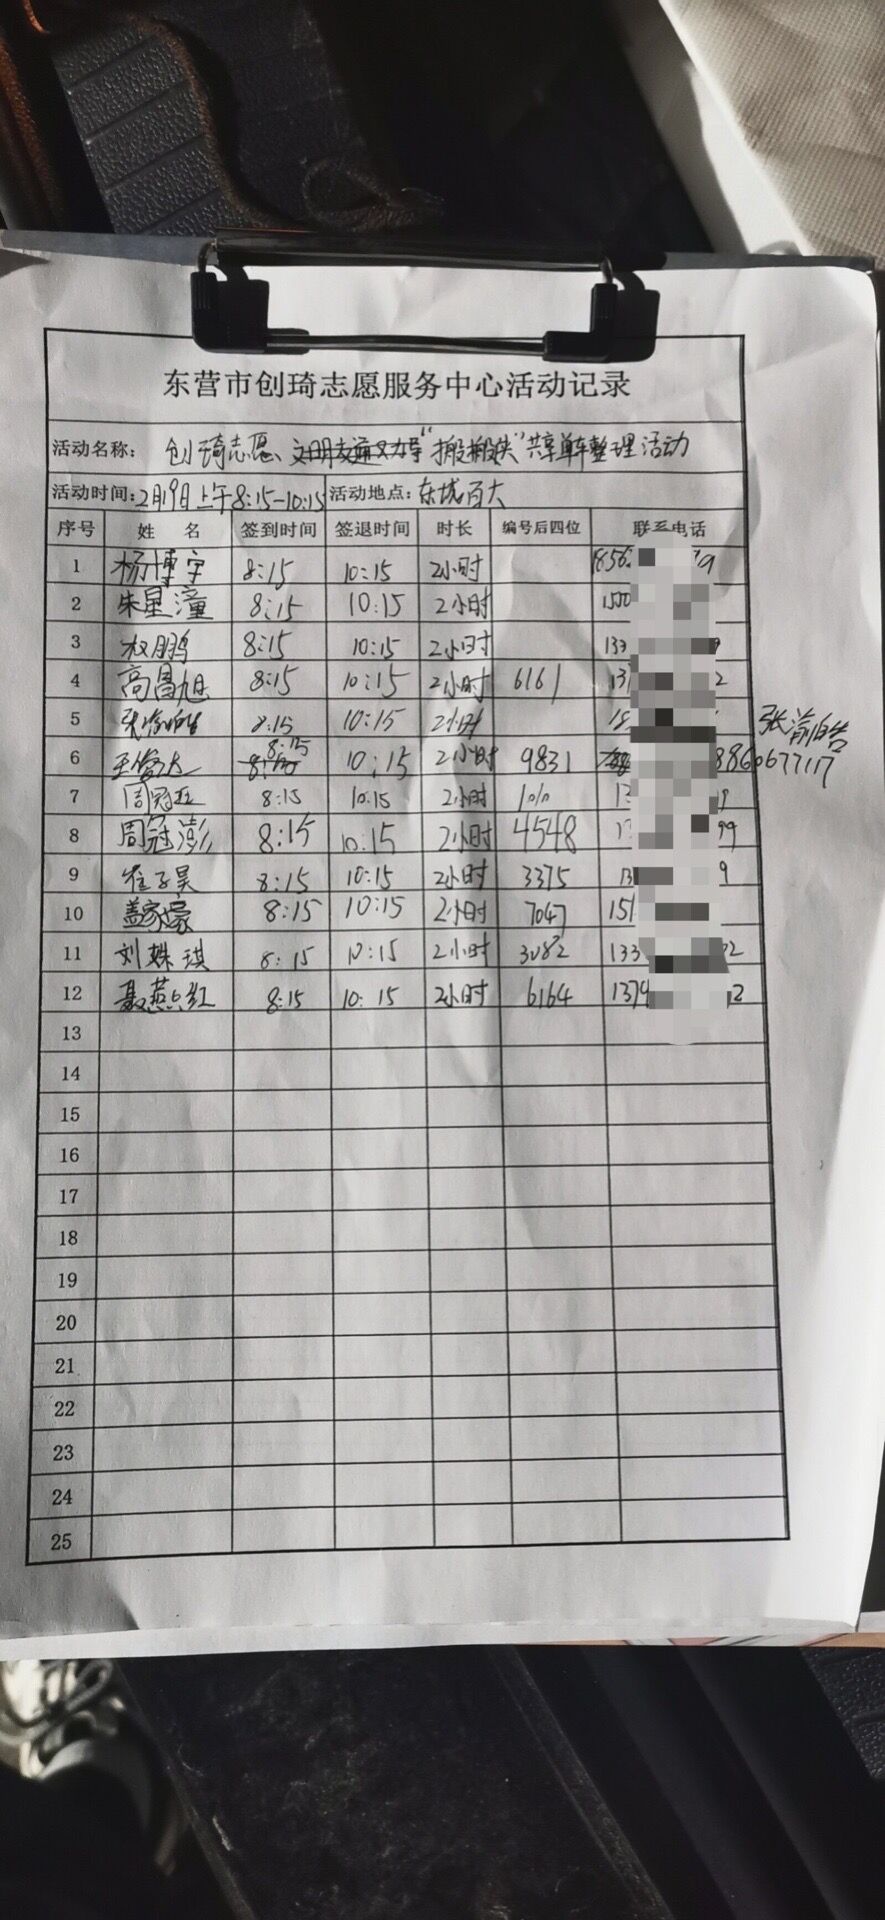 东营市创琦志愿服务中心活动记录
活动名称: 创琦志愿 文明交通劝导 "搬搬侠"共享单车整理活动
活动时间: 2月19日上午8:15-10:15 活动地点: 东城百大
序号 姓 名 签到时间 签退时间 时长 编号后四位 联系电话
1 杨博宇 8:15 10:15 2小时
2 朱星潼 8:15 10:15 2小时
3 权鹏 8:15 10:15 2小时
4 高昌旭 8:15 10:15 2小时 6161
5 张渝皓 8:15 10:15 2小时 张渝皓
6 王俊达 8:15 10:15 2小时 9831
7 周冠廷 8:15 10:15 2小时 1010
8 周冠澎 8:15 10:15 2小时 4548
9 崔子昊 8:15 10:15 2小时 3375
10 盖家壕 8:15 10:15 2小时 7047 151
11 刘姝琪 8:15 10:15 2小时 3082 133
12 聂燕红 8:15 10:15 2小时 6164 1379
13
14
15
16
17
18
19
20
21
22
23
24
25